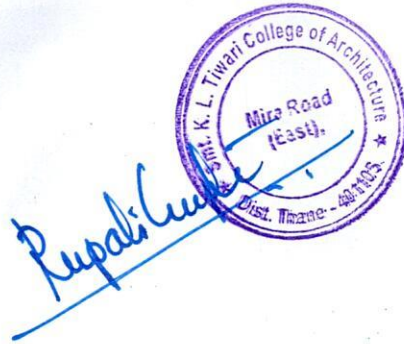 Smt. K. L. Tiwari College of Architecture
Mira Road
(East),
Dist. Thane -
Rupali